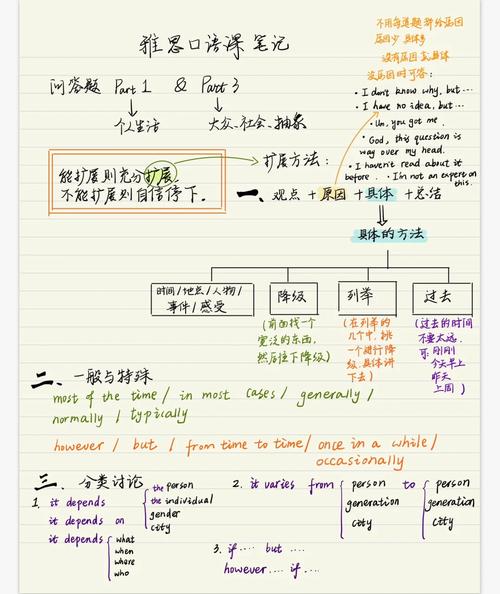 雅思口语课笔记
不用每道题都给原因
原因少 具体多
没有原因就具体
没原因时可答：
• I don't know why, but...
• I have no idea, but...
• Un, you got me.
• God, this question is
way over my head.
• I haven't read about it
before. • I'm not an expert on
this.
问答题 Part 1 & Part 3
个人生活 大众、社会、抽象
能扩展则充分扩展,
不能扩展则自信停下.
扩展方法：
一、观点 + 原因 + 具体 + 总结
具体的方法
时间/地点/人物/
事件/感受
降级
(前面找一个
宽泛的东西,
然后往下降级)
列举
(在列举的
几个中,挑
一个进行降
级,具体讲
下去)
过去
(过去的时间
不要太远,
可:刚刚
今天早上
昨天
上周)
二、一般与特殊
most of the time / in most cases / generally /
normally / typically
however / but / from time to time / once in a while /
occasionally
三、分类讨论
1. it depends
it depends on
the person
the individual
gender
city
it depends
what
when
where
who
2. it varies from
person
generation
city
to
person
generation
city
3. if.... but ....
however.... if ....